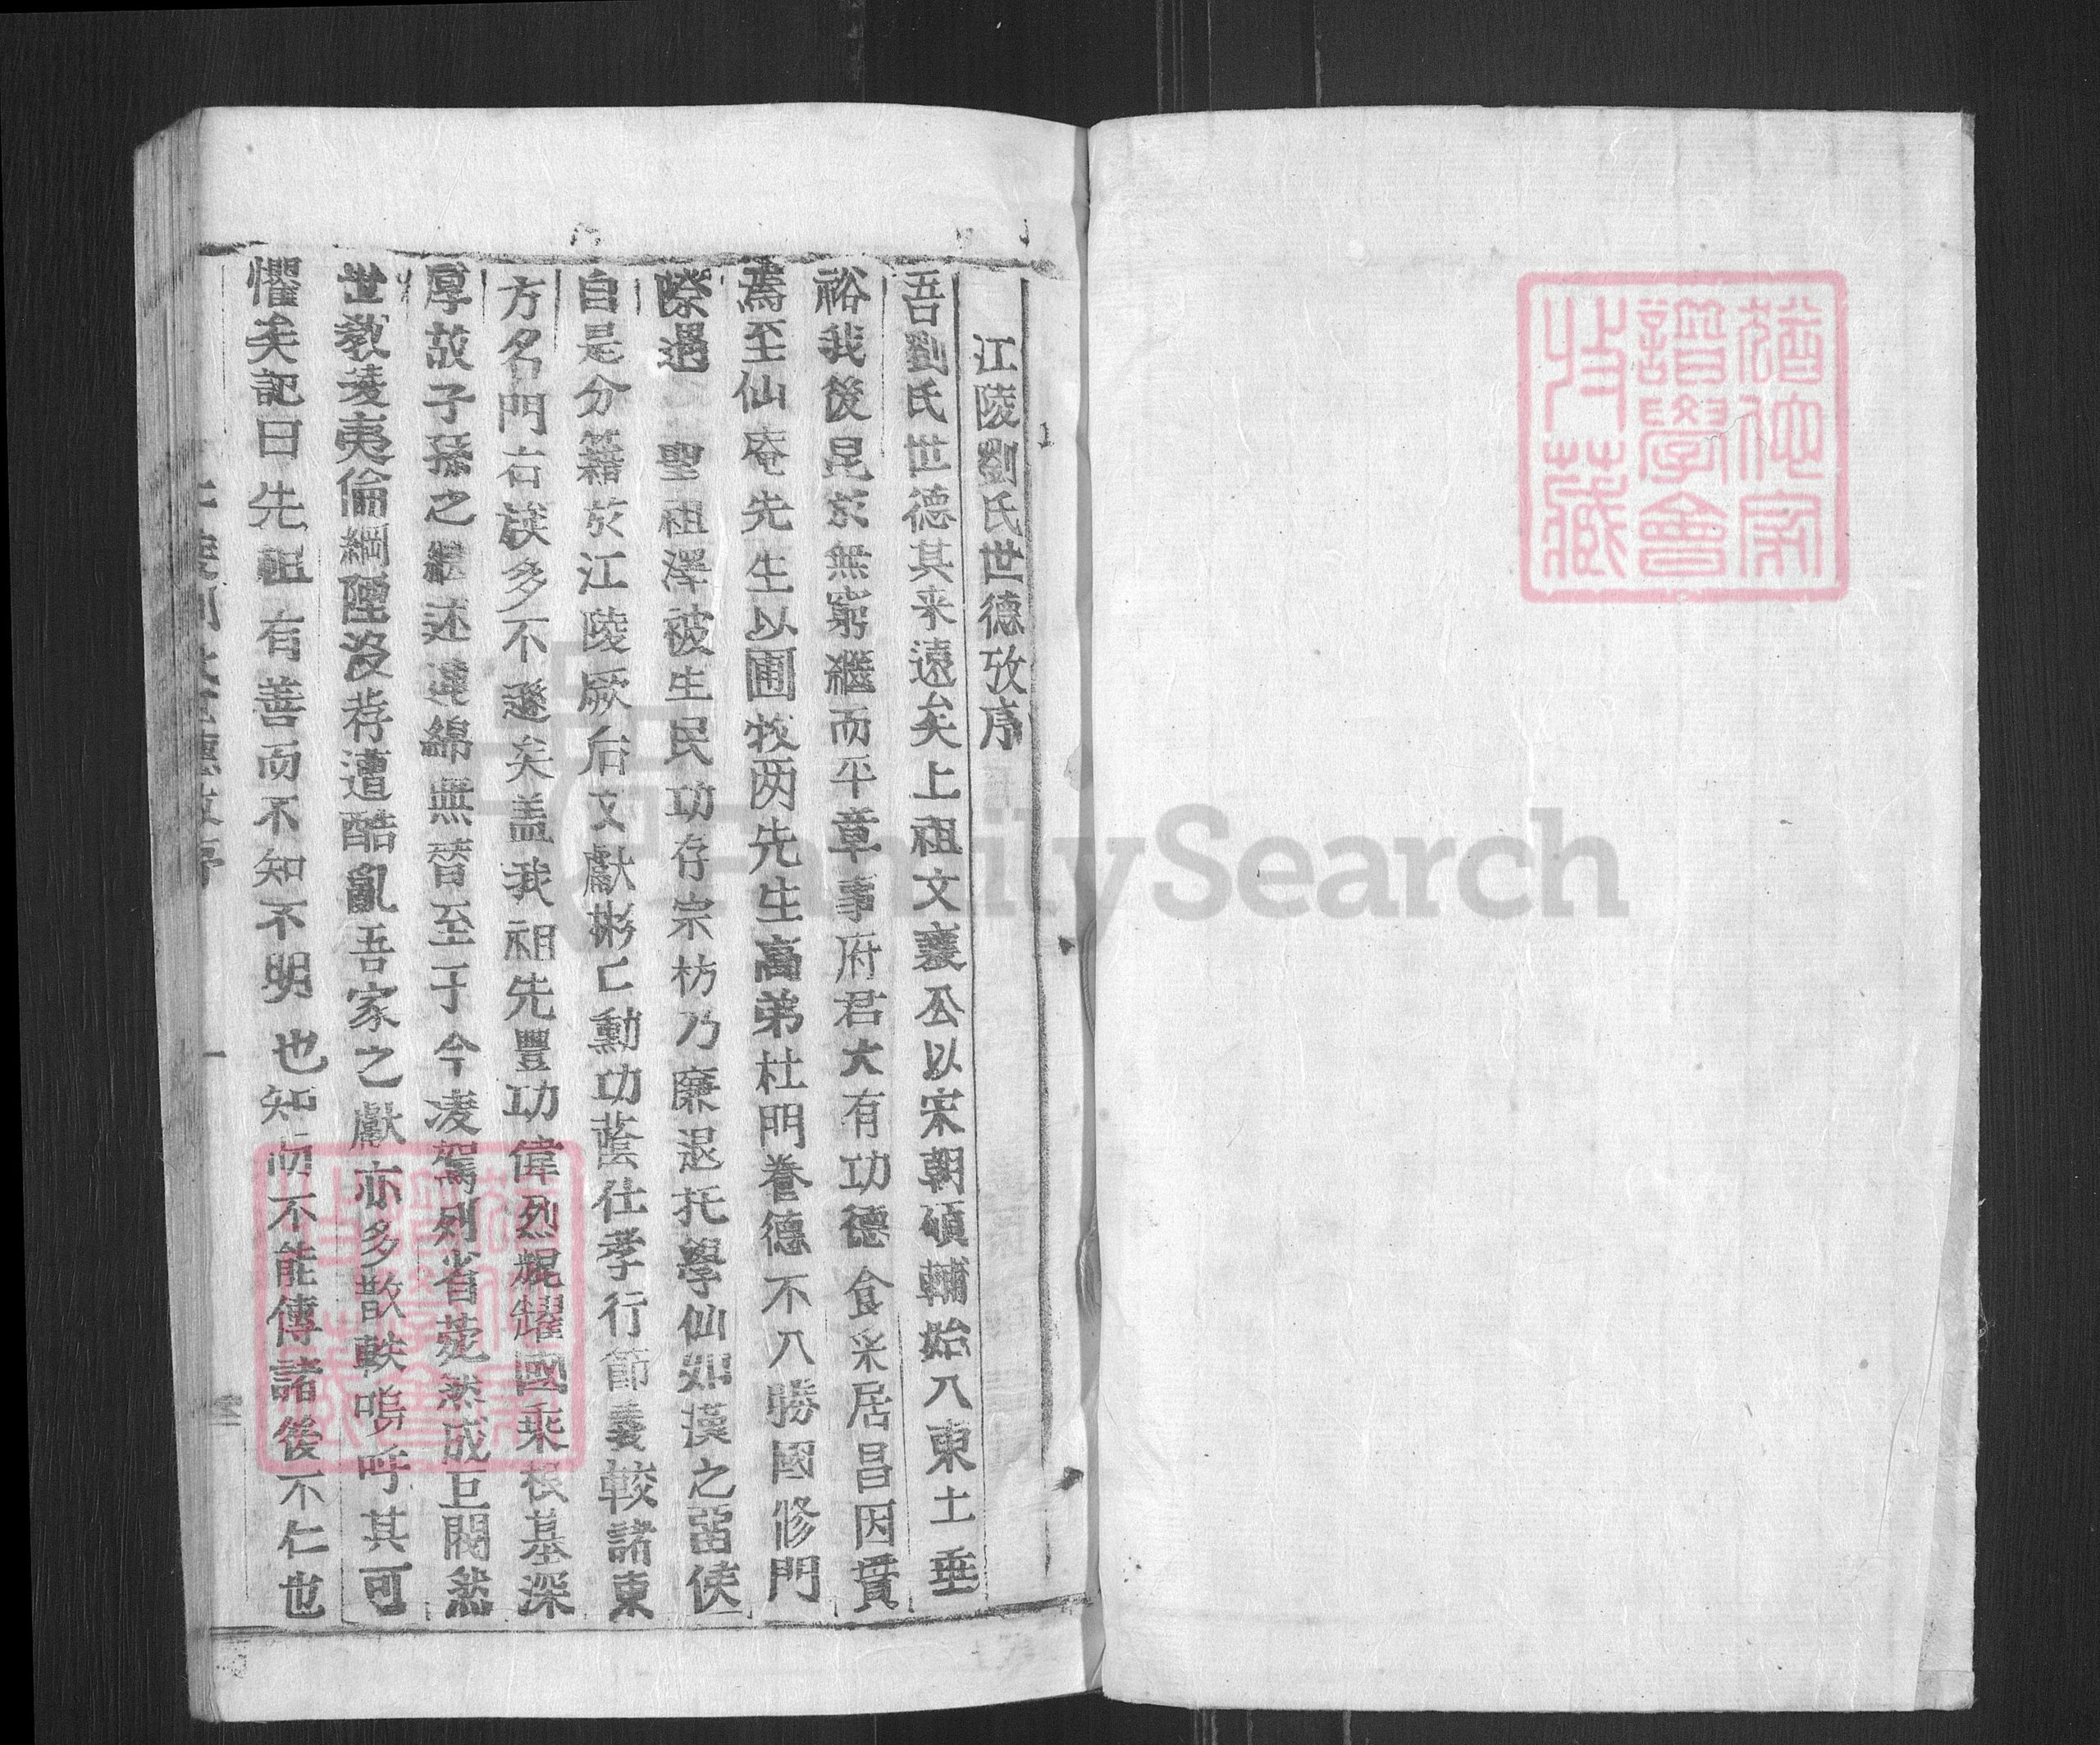 猶他家
譜學會
收藏
江陵劉氏世德攷序
吾劉氏世德其来遠矣上祖文襄公以宋朝碩輔始入東土垂
裕我後昆於無窮繼而平章事府君大有功德食采居昌因貫
焉至仙庵先生以圃牧两先生高弟杜門養德不入勝國修門
際遇 聖祖澤被生民功存宗枋乃廉退托學仙如漢之留侯
自是分籍於江陵厥后文獻彬〻勳功蔭仕孝行節義較諸東
方名門右族多不遜矣盖我祖先豐功偉烈焜耀國乘根基深
厚故子孫之繼述連綿無替至于今凌駕列省蔚然成巨閥然
世敎凌夷倫綱堙没荐遭酷亂吾家之獻亦多散軼嗚呼其可
懼矣記曰先祖有善而不知不明也知而不能傳諸後不仁也
一
FamilySearch